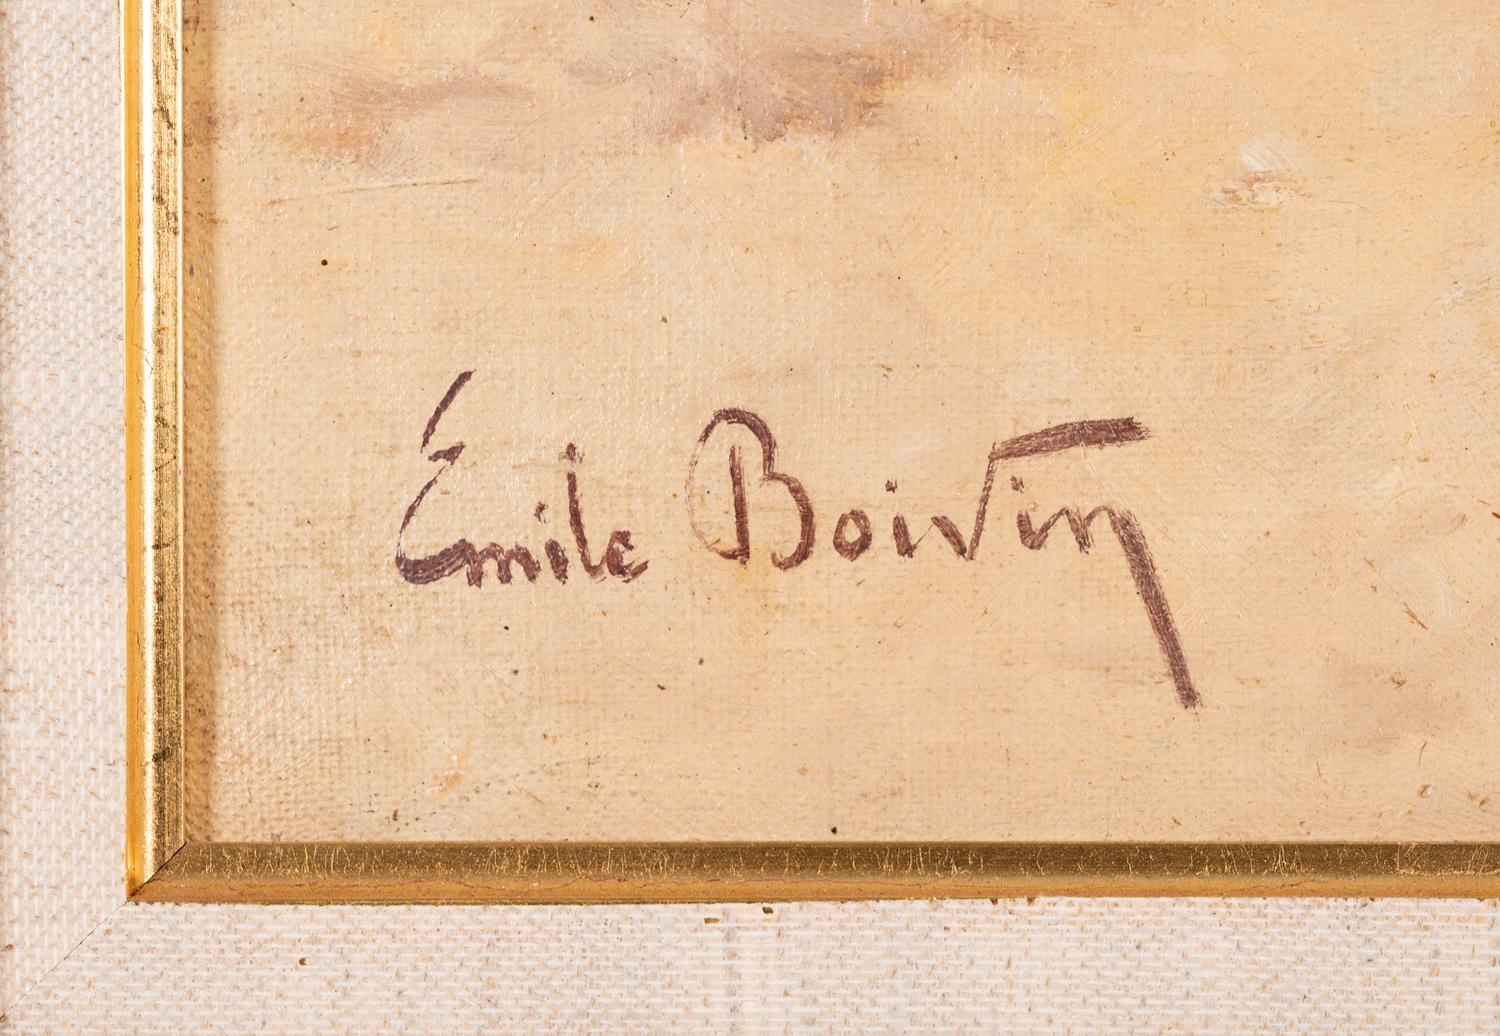 Emile Boivin